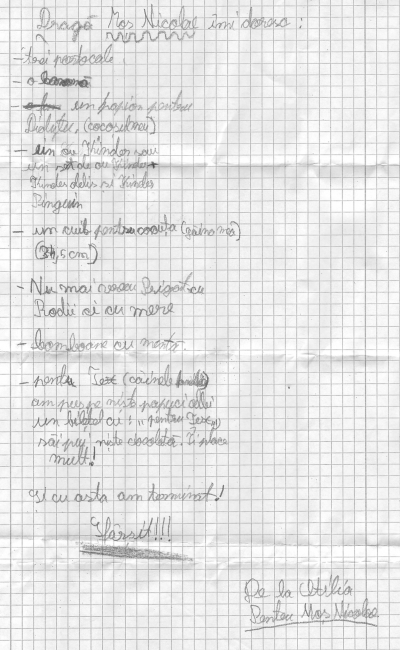 Dragă Moș Nicolae îmi doresc:
- trei portocale.
- o banană
- un papion pentru
(cocoșelmeu)
- un ou Kinder sau
un set de ou Kinder +
Kinder delis și Kinder
Pinguin
- un cuib pentru cocuța (găina mea)
(34,5 cm)
- Nu mai vreau cu
Rodii ci cu mere
- bomboane cu mentă.
- pentru Tex (câinele familiei)
am pus pe niște papuci ai lei
un bilețel cu: "pentru Tex"
săi pui niște ciocolată. Îi place
mult!
Și cu asta am terminat!
Sfârșit!!!
De la Otilia
Pentru Moș Nicolae